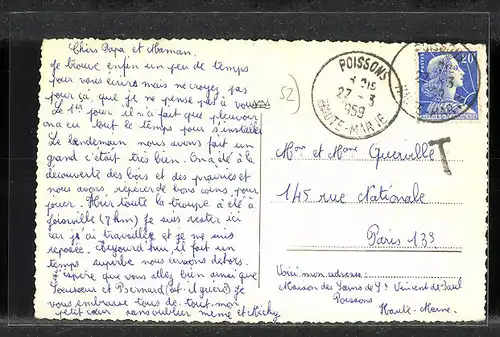 Chers Papa et Maman.
Je trouve enfin un peu de temps
pour vous écrire mais ne croyez pas
pour ça que je ne pense pas à vous
Le 1er jour il n'a fait que pleuvoir
on a eu tout le temps pour s'installer
Le lendemain nous avons fait un
grand c'était très bien. On a été à la
découverte des bois et des prairies et
nous avons repérer de bons coins pour
jouer. Hier toute la troupe a été à
Joinville (7 km) je suis rester ici
car j'ai travaillée et je me suis
reposée. Aujourd'hui il fait un
temps superbe nous vivons dehors.
J'espère que vous allez bien ainsi que
et Bernard (est-il guéri) Je
vous embrasse tous de tout mon
petit cœur sans oublier mémé et Michy
52)
POISSONS
15
27-3
1959
HAUTE-MARNE
POISSONS
20F
T
Mon et Mme Guerville
145 rue Nationale
Paris 13e
Voici mon adresse:
Maison des Sœurs de St Vincent de Paul
Poissons
Haute-Marne.